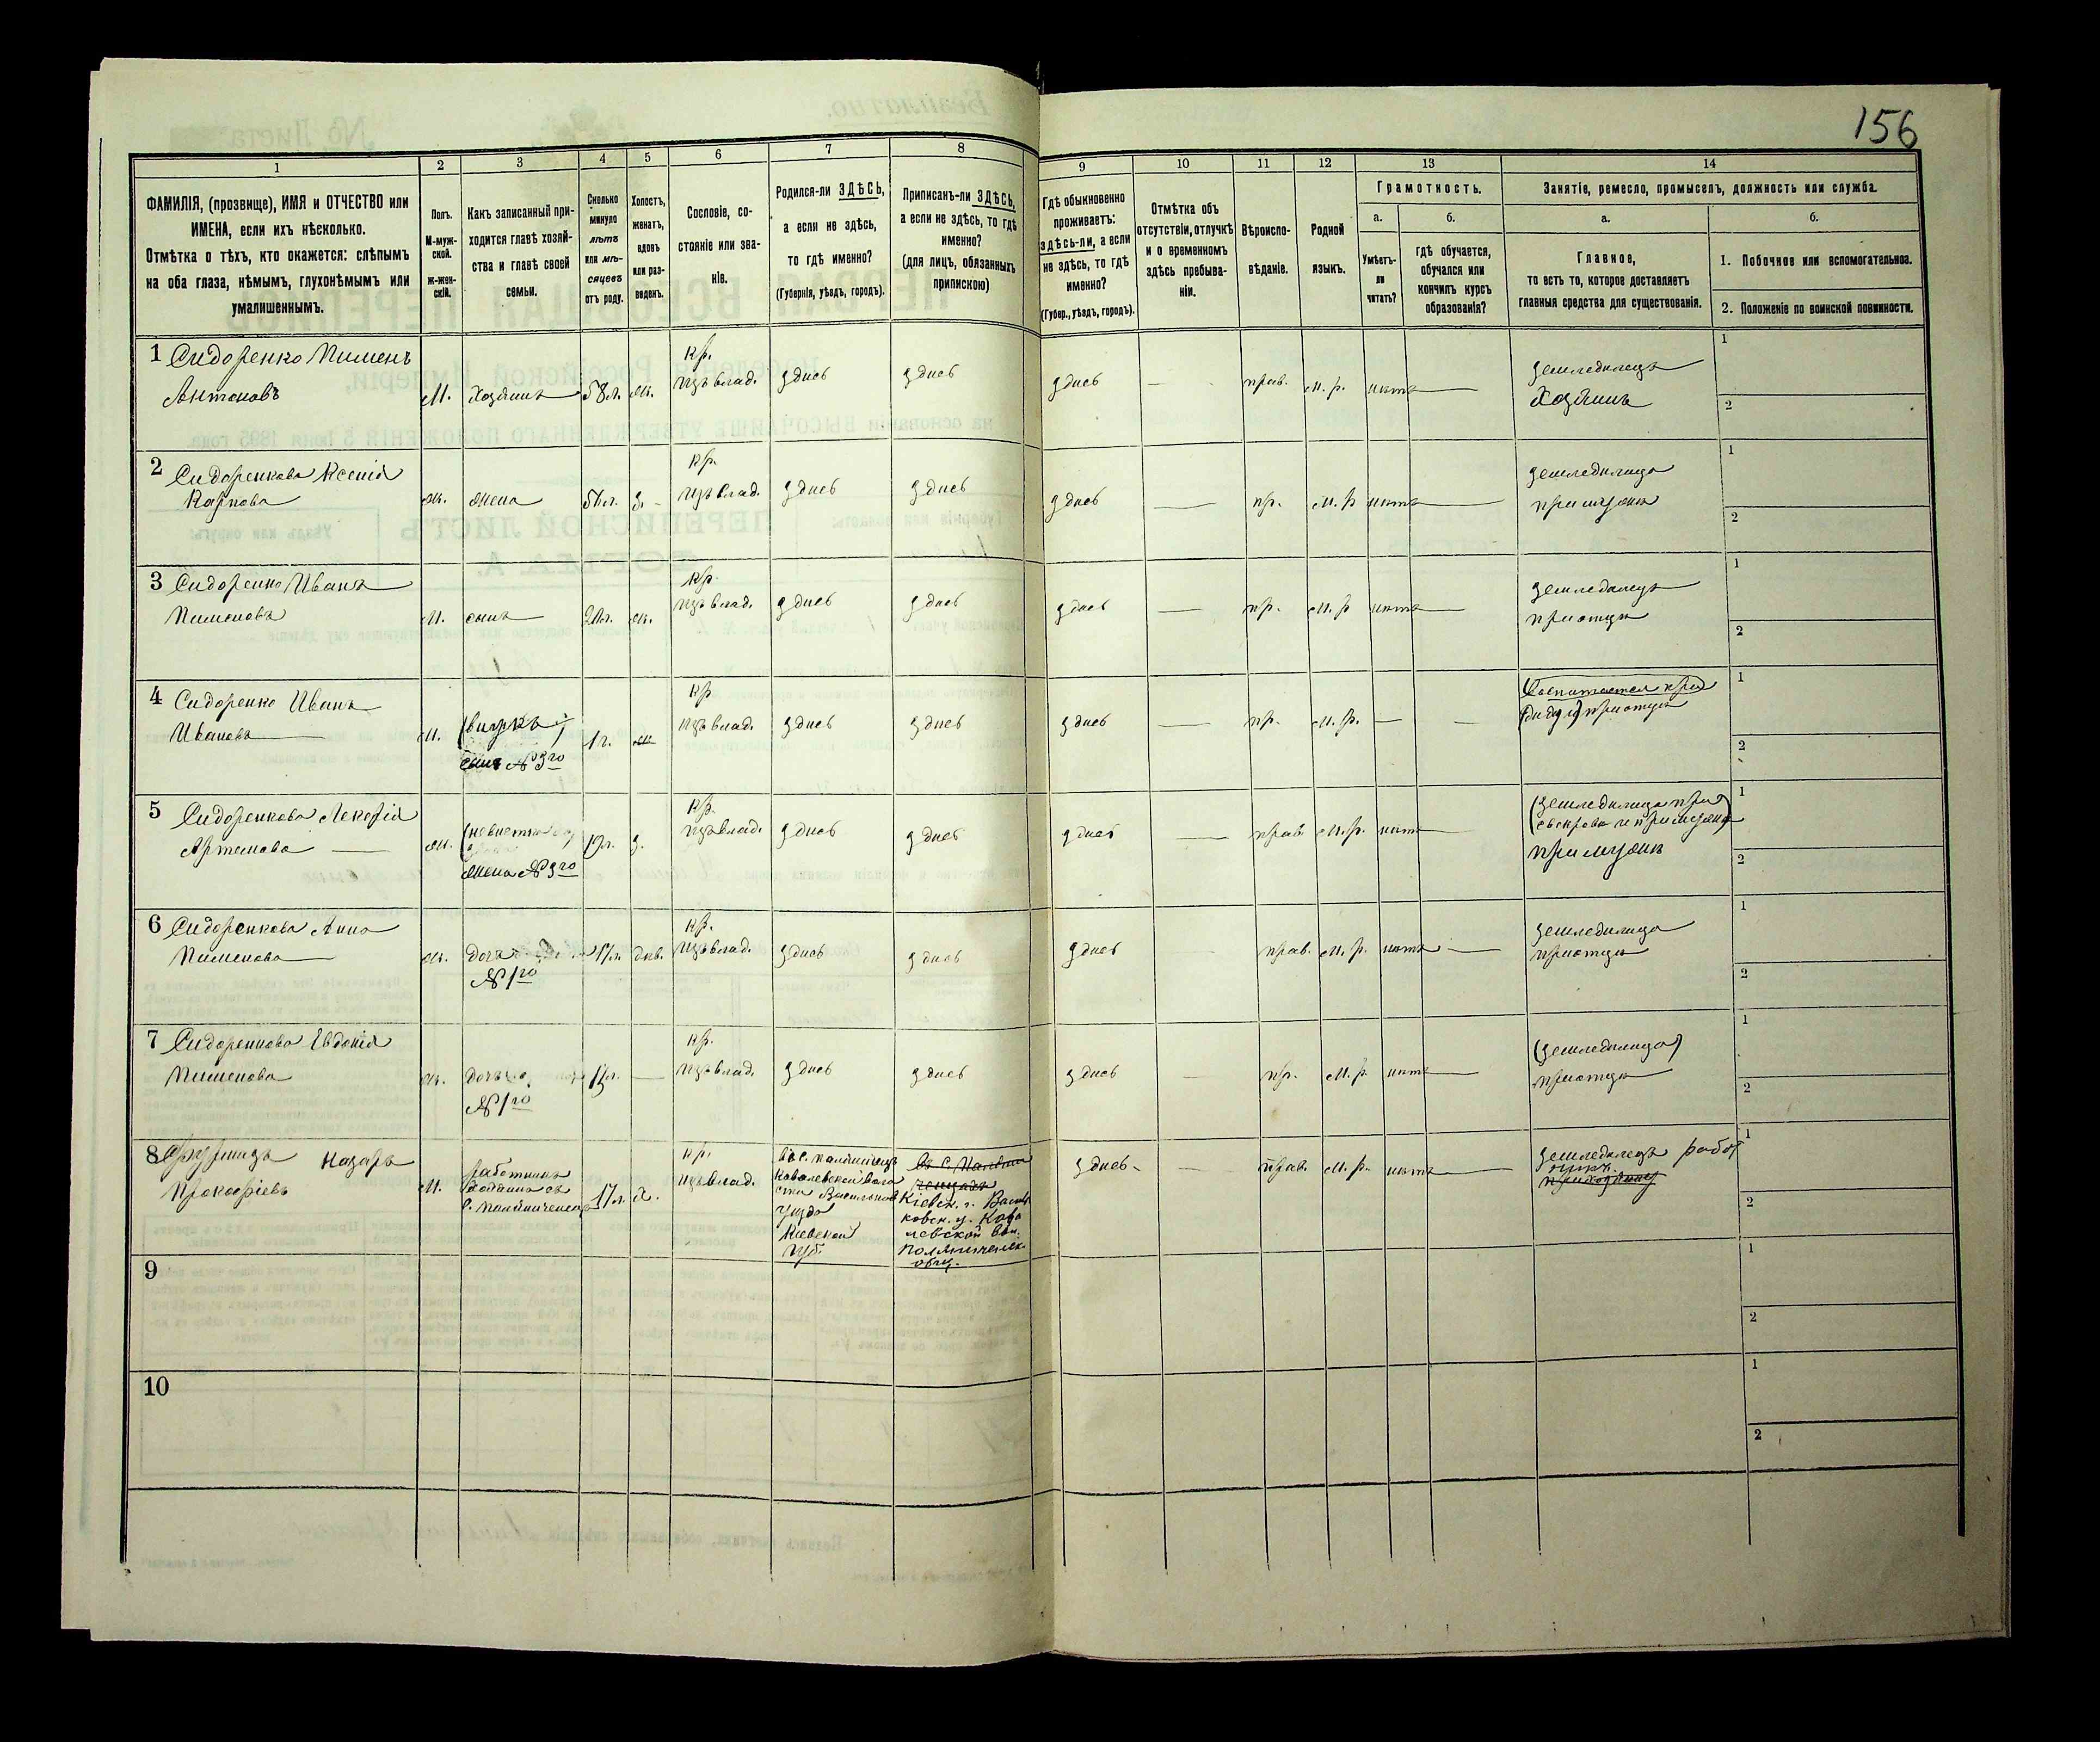 156
1
2
3
4
5
6
7
8
9
10
11
12
13
14
ФАМИЛІЯ, (прозвище), ИМЯ и ОТЧЕСТВО или
ИМЕНА, если ихъ нѣсколько.
Отмѣтка о тѣхъ, кто окажется: слѣпымъ
на оба глаза, нѣмымъ, глухонѣмымъ или
умалишеннымъ.
Полъ.
М-муж-
ской.
Ж-жен-
скій.
Какъ записанный при-
ходится главѣ хозяй-
ства и главѣ своей
семьи.
Сколько
минуло
лѣтъ
или мѣ-
сяцевъ
отъ роду.
Холостъ,
женатъ,
вдовъ
или раз-
веденъ.
Сословіе, со-
стояніе или зва-
ніе.
Родился-ли ЗДѢСЬ,
а если не здѣсь,
то гдѣ именно?
(Губернія, уѣздъ, городъ).
Приписанъ-ли ЗДѢСЬ,
а если не здѣсь, то гдѣ
именно?
(для лицъ, обязанныхъ
припискою)
Гдѣ обыкновенно
проживаетъ:
здѣсь-ли, а если
не здѣсь, то гдѣ
именно?
(Губер., уѣздъ, городъ).
Отмѣтка объ
отсутствіи, отлучкѣ
и о временномъ
здѣсь пребыва-
ніи.
Вѣроиспо-
вѣданіе.
Родной
языкъ.
Грамотность.
а.
б.
Умѣетъ-
ли
читать?
гдѣ обучается,
обучался или
кончилъ курсъ
образованія?
Занятіе, ремесло, промыселъ, должность или служба.
а.
б.
Главное,
то есть то, которое доставляетъ
главныя средства для существованія.
1. Побочное или вспомогательное.
2. Положеніе по воинской повинности.
1 Сидоренко Пименъ
Антоновъ
М. Хозяинъ 58 л. ж.
Кр.
изъ влад. здѣсь здѣсь здѣсь — прав. М. р. нѣтъ —
земледѣлецъ
Хозяинъ
1
2
2 Сидоренкова Ксенія
Карпова
ж. жена з.
Кр.
изъ влад. здѣсь здѣсь здѣсь — пр. М. р нѣтъ —
земледѣлица
при мужѣ
1
2
3 Сидоренко Иванъ
Пименовъ
М. сынъ ж.
Кр.
изъ влад. здѣсь здѣсь здѣсь — пр. М. р нѣтъ —
земледѣлецъ
при отцѣ
1
2
4 Сидоренко Иванъ
Ивановъ
М. (внукъ)
сынъ № 3го
1 г.
Кр
изъ влад. здѣсь здѣсь здѣсь — пр. М. р. — —
при отцѣ
1
2
5 Сидоренкова
Артемова
ж. (невѣстка
жена № 3го
19 л. з.
Кр.
изъ влад. здѣсь здѣсь здѣсь — прав М. р. нѣтъ —
(земледѣлица при
при мужѣ
1
2
6 Сидоренкова Анна
Пименова
ж. дочь
№ 1го
дѣв.
Кр.
изъ влад. здѣсь здѣсь здѣсь прав. М. р. нѣтъ —
земледѣлица
при отцѣ
1
2
7 Сидоренкова Евдокія
Пименова
ж. дочь
№ 1го
—
Кр.
изъ влад. здѣсь здѣсь здѣсь — пр. М. р. нѣтъ —
(земледѣлица)
при отцѣ
1
2
8 Назаръ
Прокофіевъ
М. работникъ
17 л. х.
Кр.
изъ влад.
Ковалевской воло
сти Васильков
уѣзда
Кіевской
губ.
Кіевск. г. Василь
ковск. у. Кова
левской вол.
общ.
здѣсь — — прав. М. р. нѣтъ —
земледѣлецъ работ
1
2
9
1
2
10
1
2